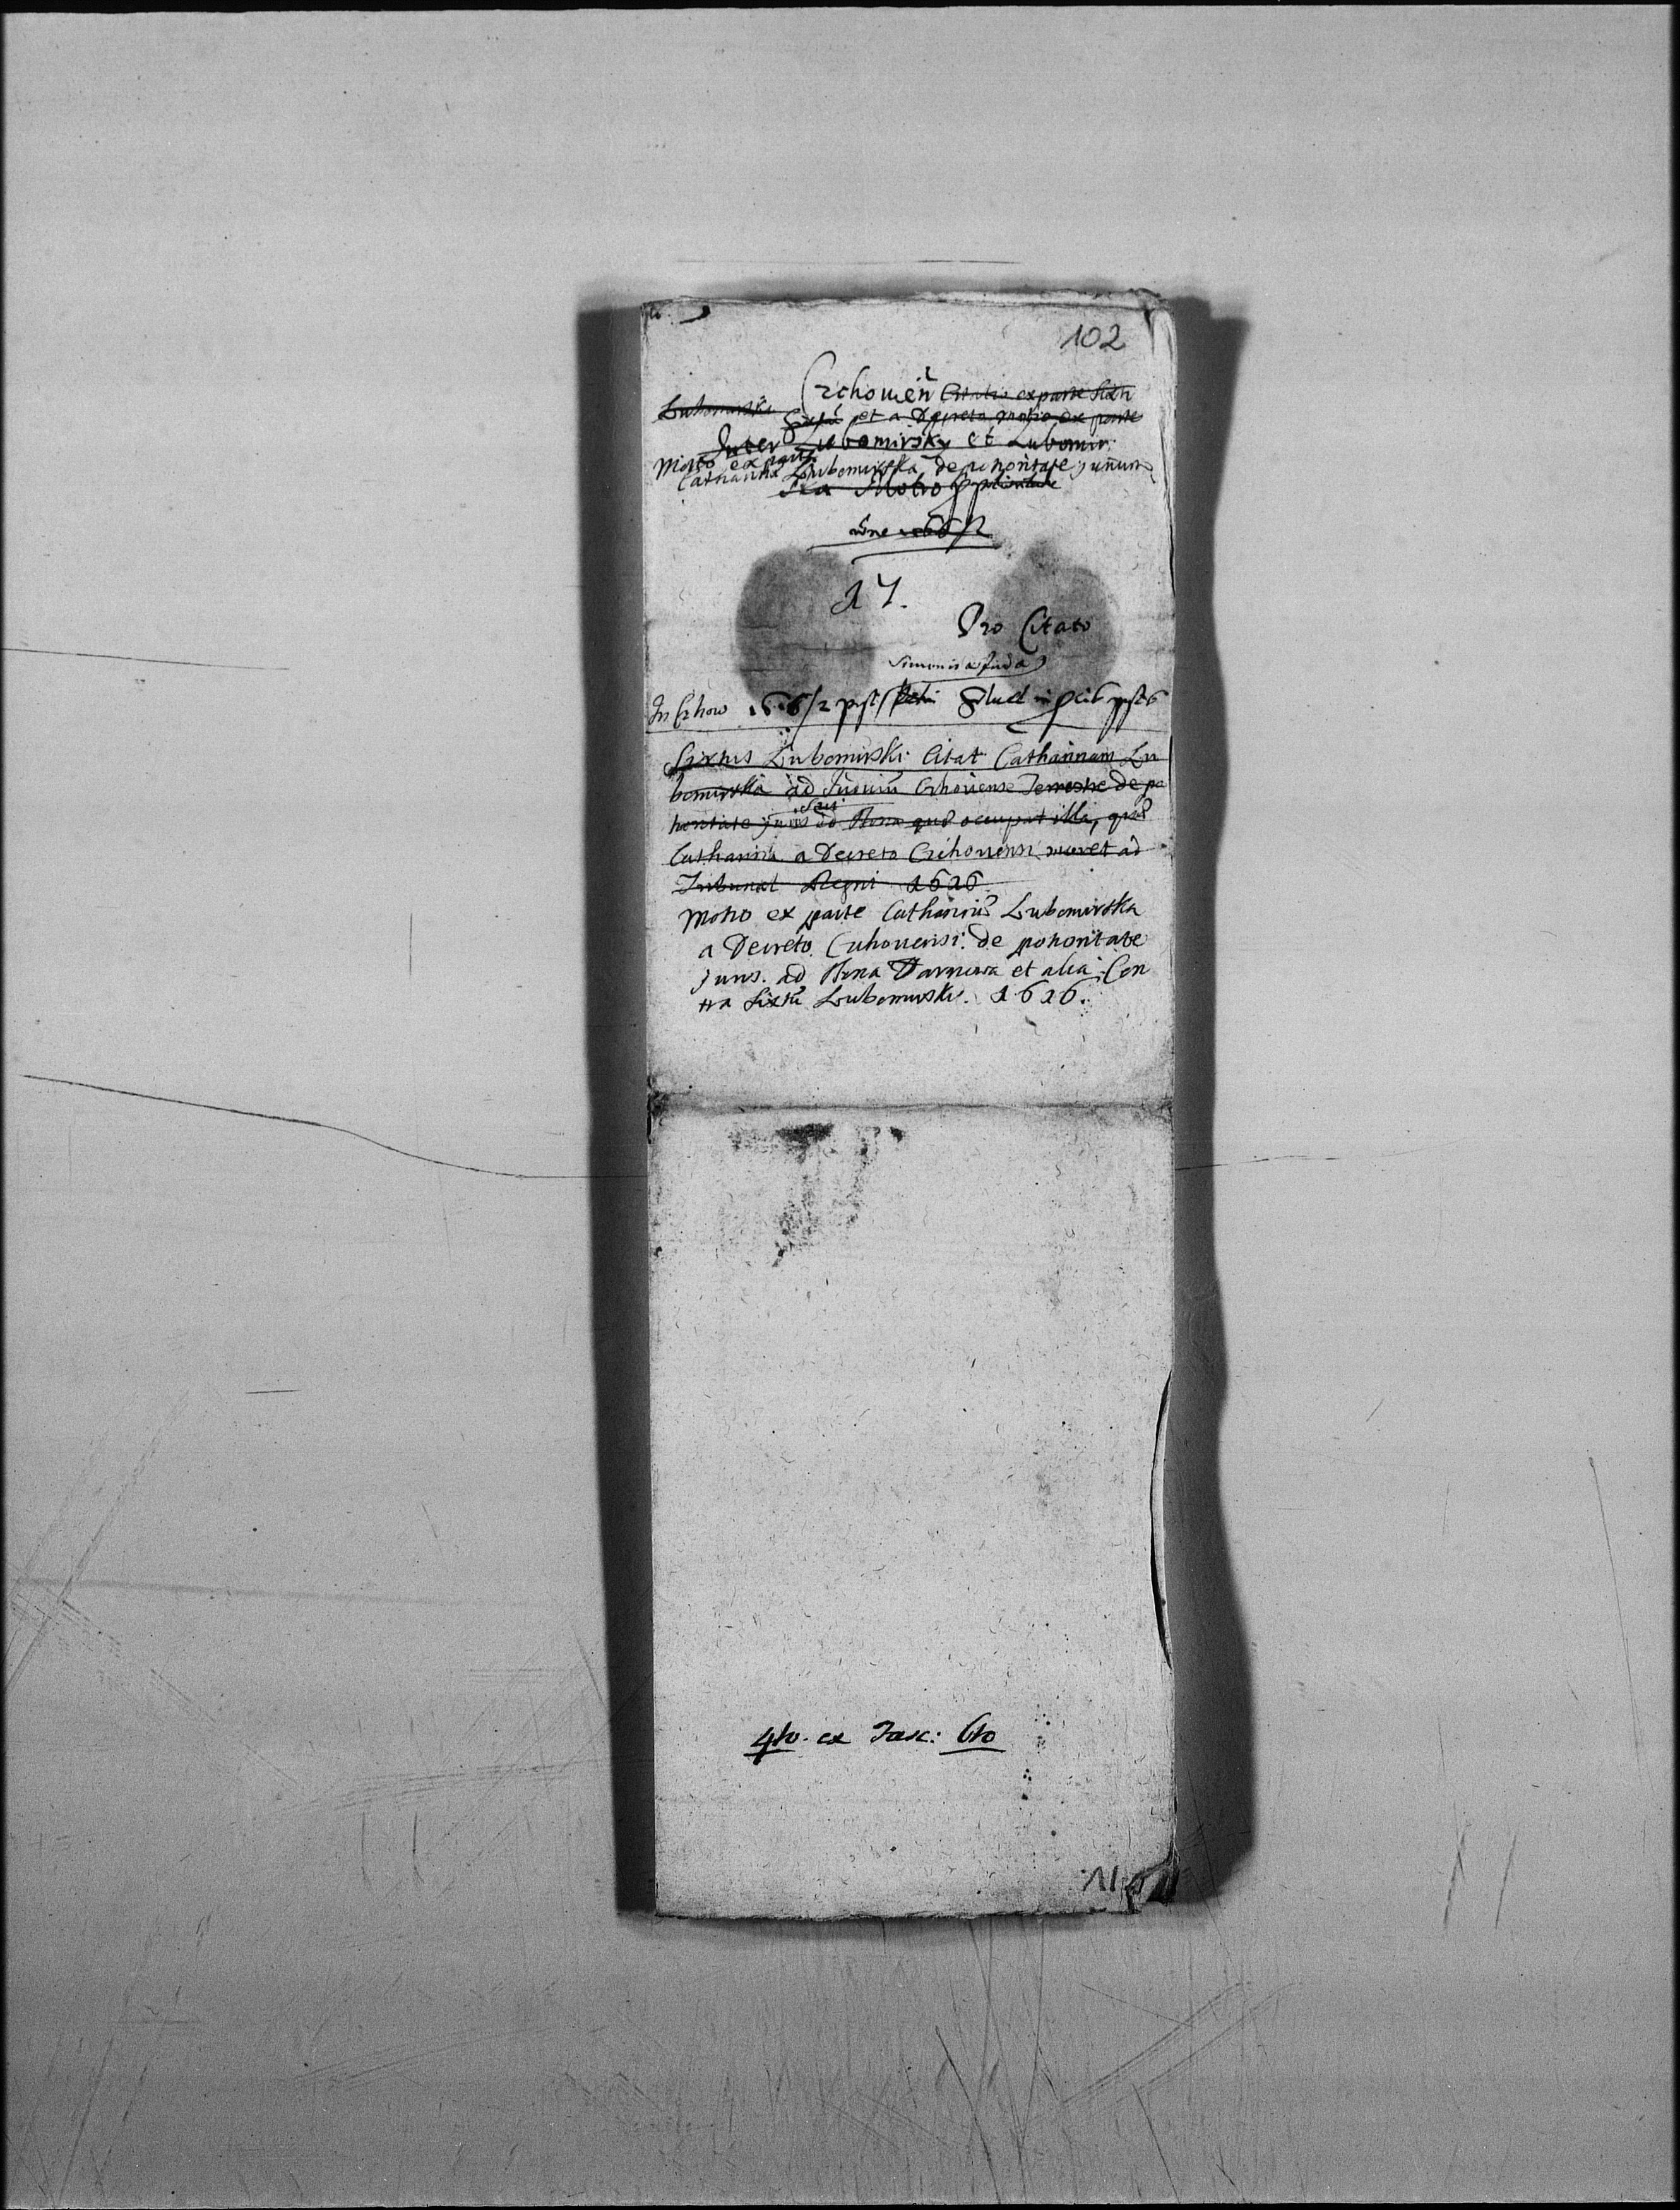 102
Czchouen̄ Citatio ex parte Sixti
Lubomirski
et a Decreto motio ex parte
Inter Lubomirsky et Lubomir
Motio ex parte
Catharina Lubomirska de potioritate juriu
ska Motio
17.
Pro Citato
Simonis a Juda
In Czhow post
Sixtus Lubomirski Citat Catharinam Lu
bomirska ad Judiciū Czhouense Terrestre de po
tioritate juris ad Bona quæ occupat illa, quæ
Catharina a Decreto Czchouensi movet ad
Tribunal Regni 1616
Motio ex parte Catharinæ Lubomirska
a Decreto Czchouensi de potioritate
Juris ad Bona et alia Con
tra Sixtū Lubomirski. 1616.
4to. ex Fasc: 6to